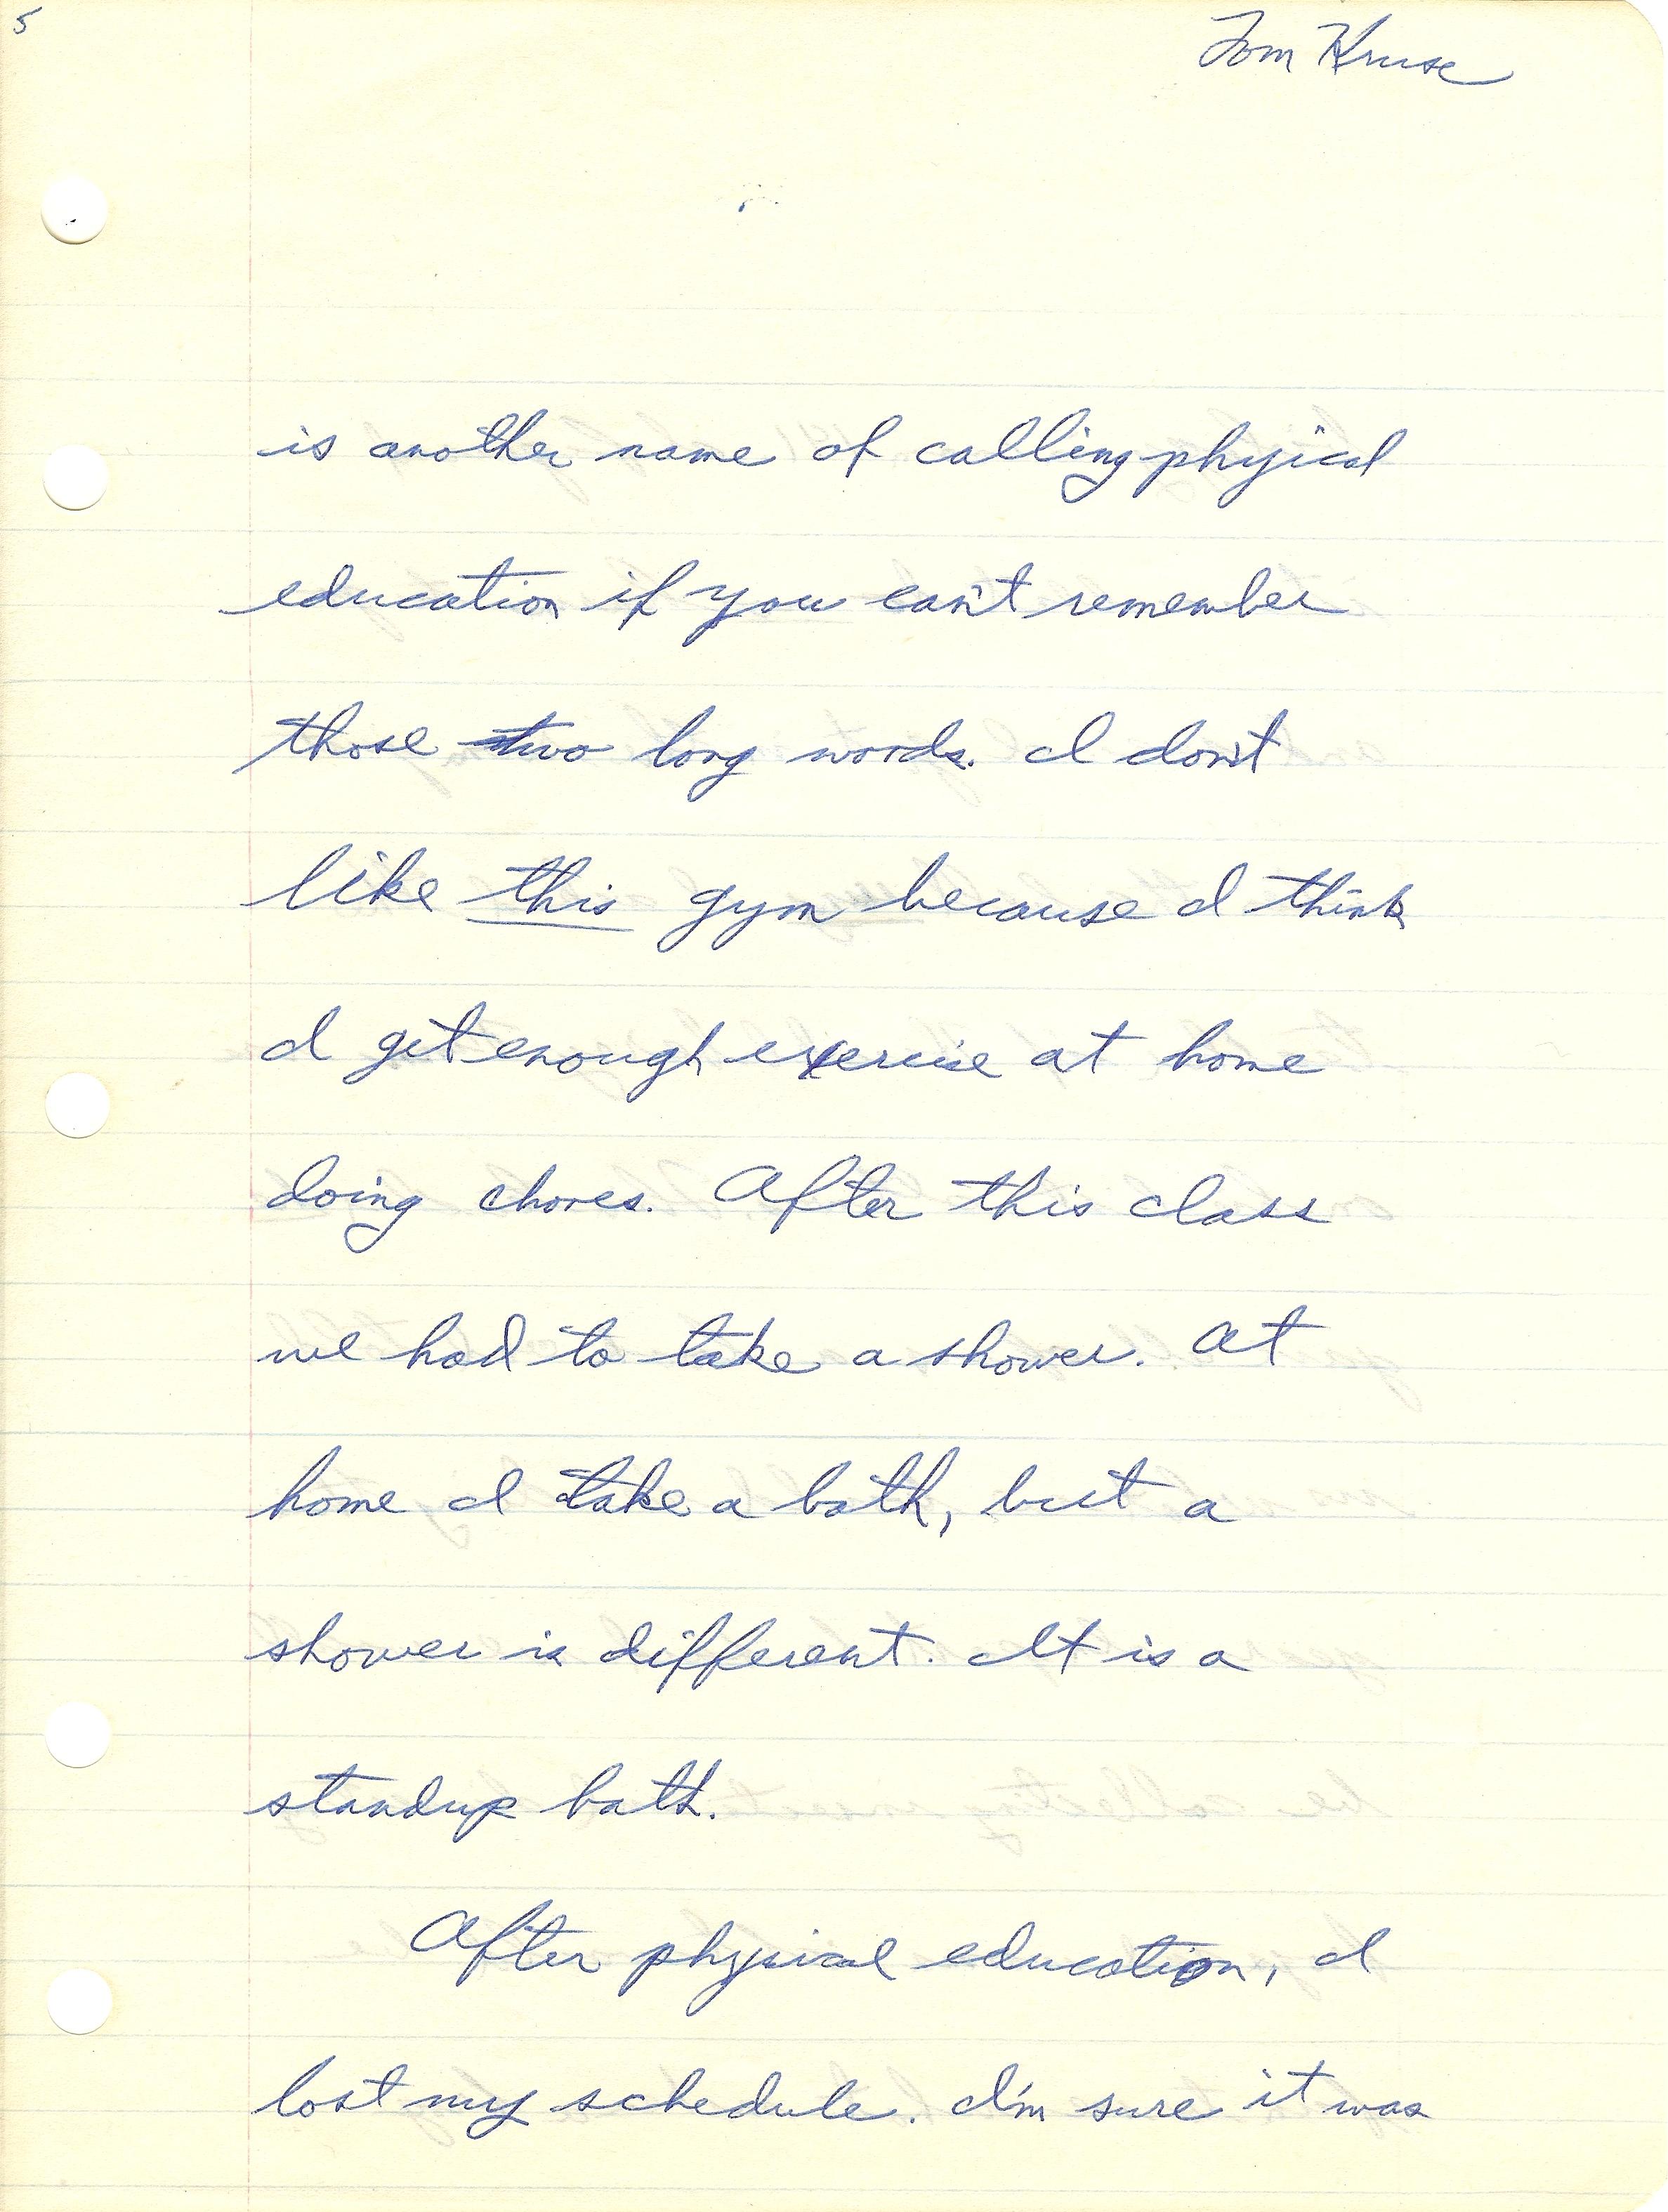 5
Tom Kruse
is another name of calling phyical
education if you can't remember
those two long words. I don't
like this gym because I think
I get enough exercise at home
doing chores. After this class
we had to take a shower. At
home I take a bath, but a
shower is different. It is a
standup bath.
After physical education, I
lost my schedule. I'm sure it was